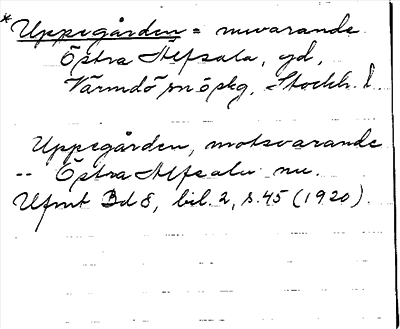 * Uppegården = nuvarande
Östra Alfsala, gd,
Värmdö sn ö skg, Stockh. l.
Uppegården, motsvarande
-- Östra Alfsala nu.
Ufmt Bd 8, bil. 2, s. 45 (1920).